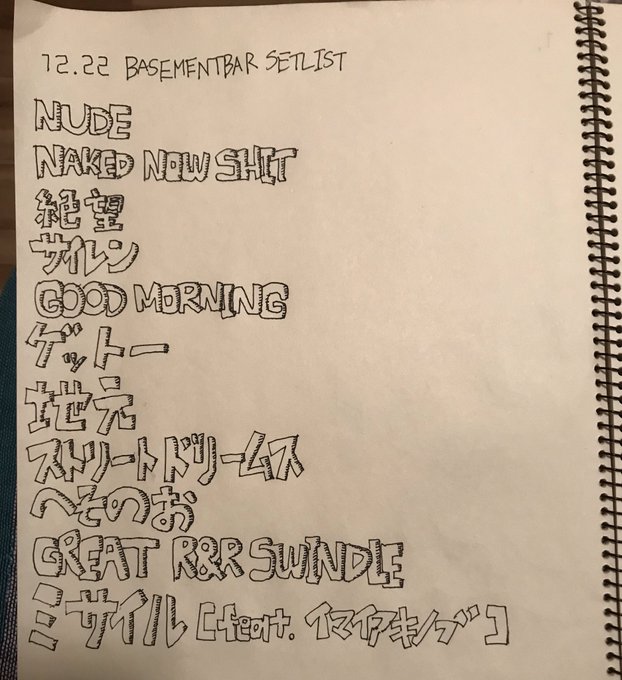 12.22 BASEMENTBAR SETLIST
NUDE
NAKED NOW SHIT
絶望
サイレン
GOOD MORNING
ゲットー
地元
ストリートドリームス
へそのお
GREAT R&R SWINDLE
ミサイル [feat. イマイアキノブ]